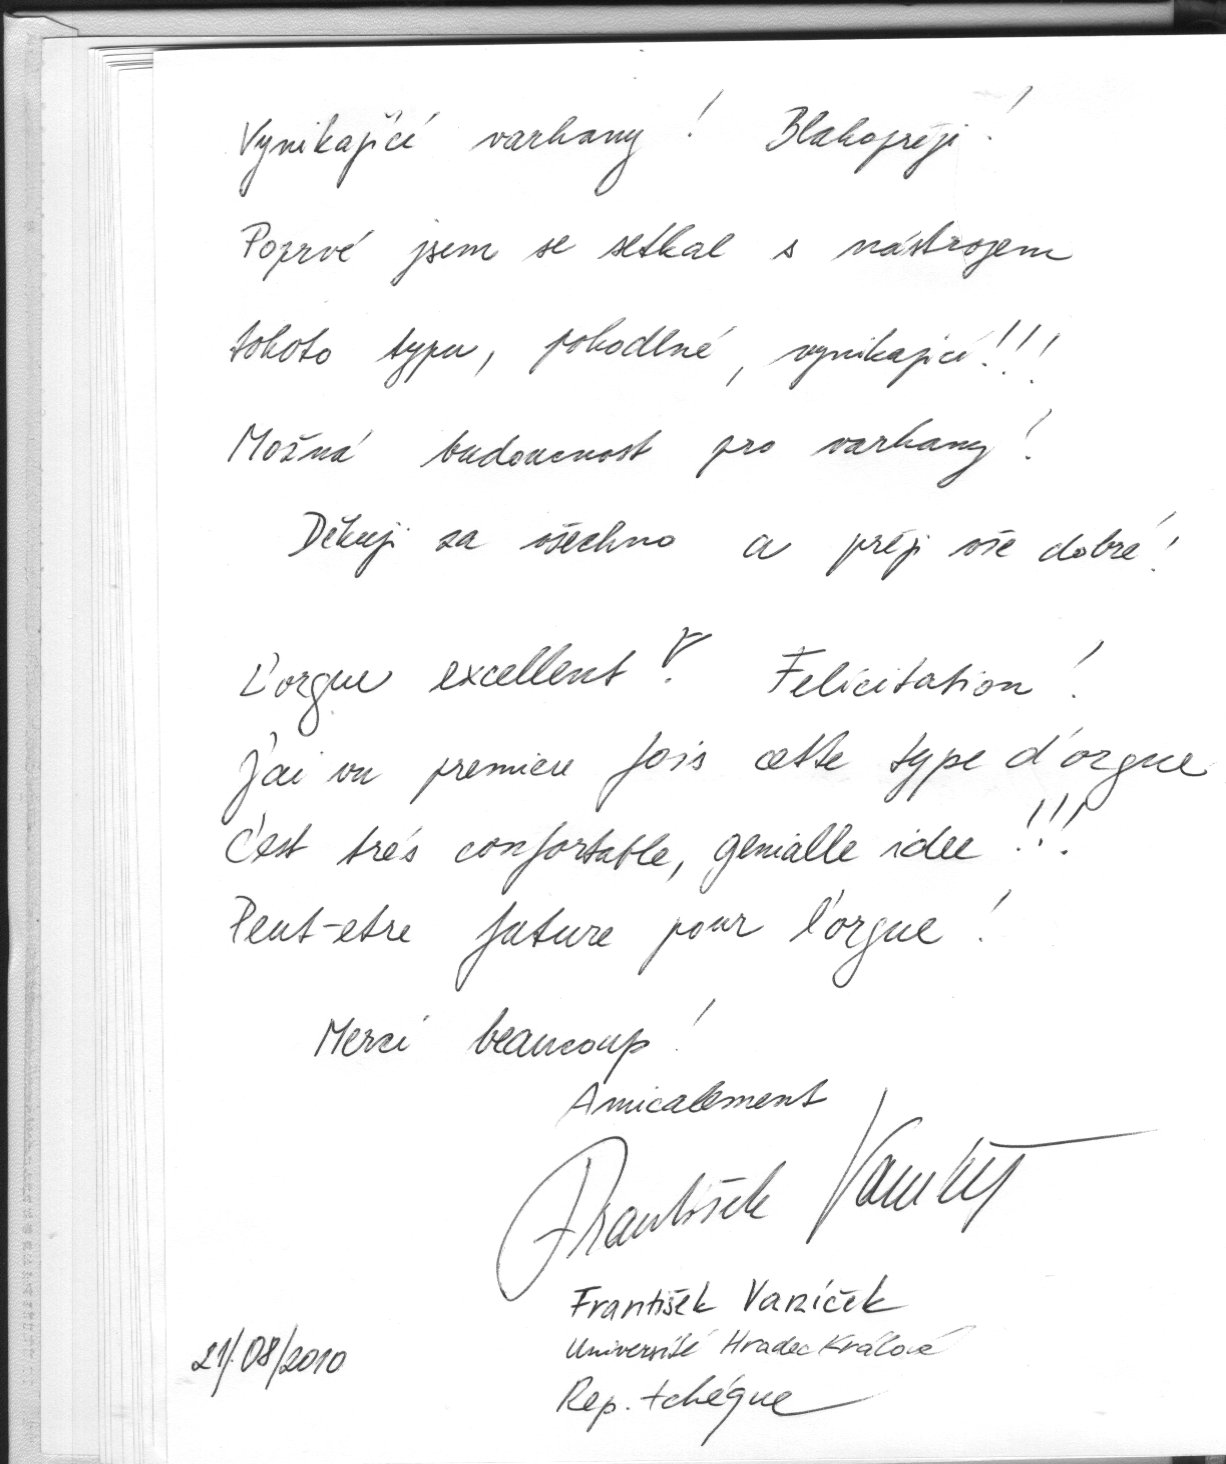 Vynikající varhany! Blahopřeji!
Poprvé jsem se setkal s nástrojem
tohoto typu, pohodlné, vynikající!!!
Možná budoucnost pro varhany!
Děkuji za všechno a přeji vše dobré!
L'orgue excellent! Felicitation!
J'ai vu premiere fois cette type d'orgue
C'est trés confortable, genialle idee!!!
Peut-etre future pour l'orgue!
Merci beaucoup!
Amicalement
František Vaníček
František Vaníček
Université Hradec Králové
21/08/2010
Rep. tchéque